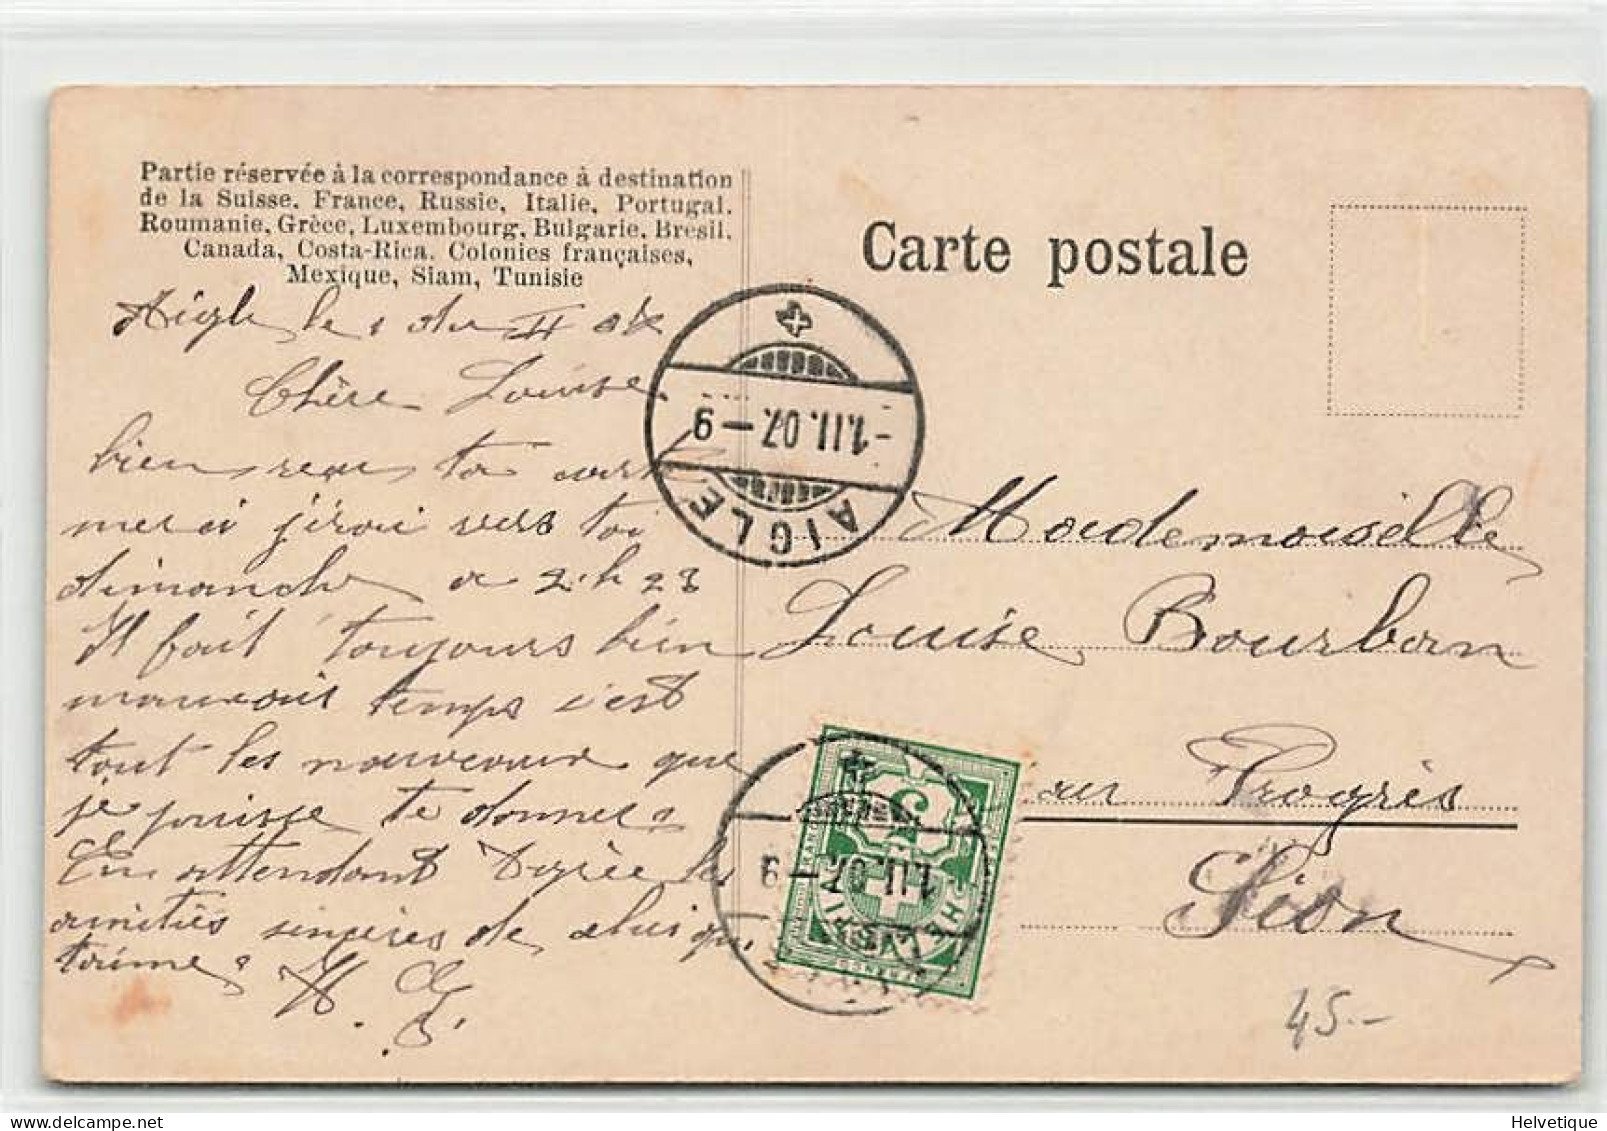 Partie réservée à la correspondance à destination
de la Suisse, France, Russie, Italie, Portugal,
Roumanie, Grèce, Luxembourg, Bulgarie, Brésil,
Canada, Costa-Rica, Colonies françaises,
Mexique, Siam, Tunisie
Aigle le 1 du II 07
Chère Louise
bien reçu ta carte
merci j'irai vers toi
dimanche a 2 h 23
Il fait toujours bien
mauvais temps c'est
tout les nouveaux que
je puisse te donner
En attendant reçois les
amitiés sincères de celui qui
t'aime
H. G.
Carte postale
AIGLE
-1.II.07.-9
Mademoiselle
Louise Bourban
au Progrès
Sion
5
HELVETIA
FRANCO
1.II.07.-9
45.-
Helvetique